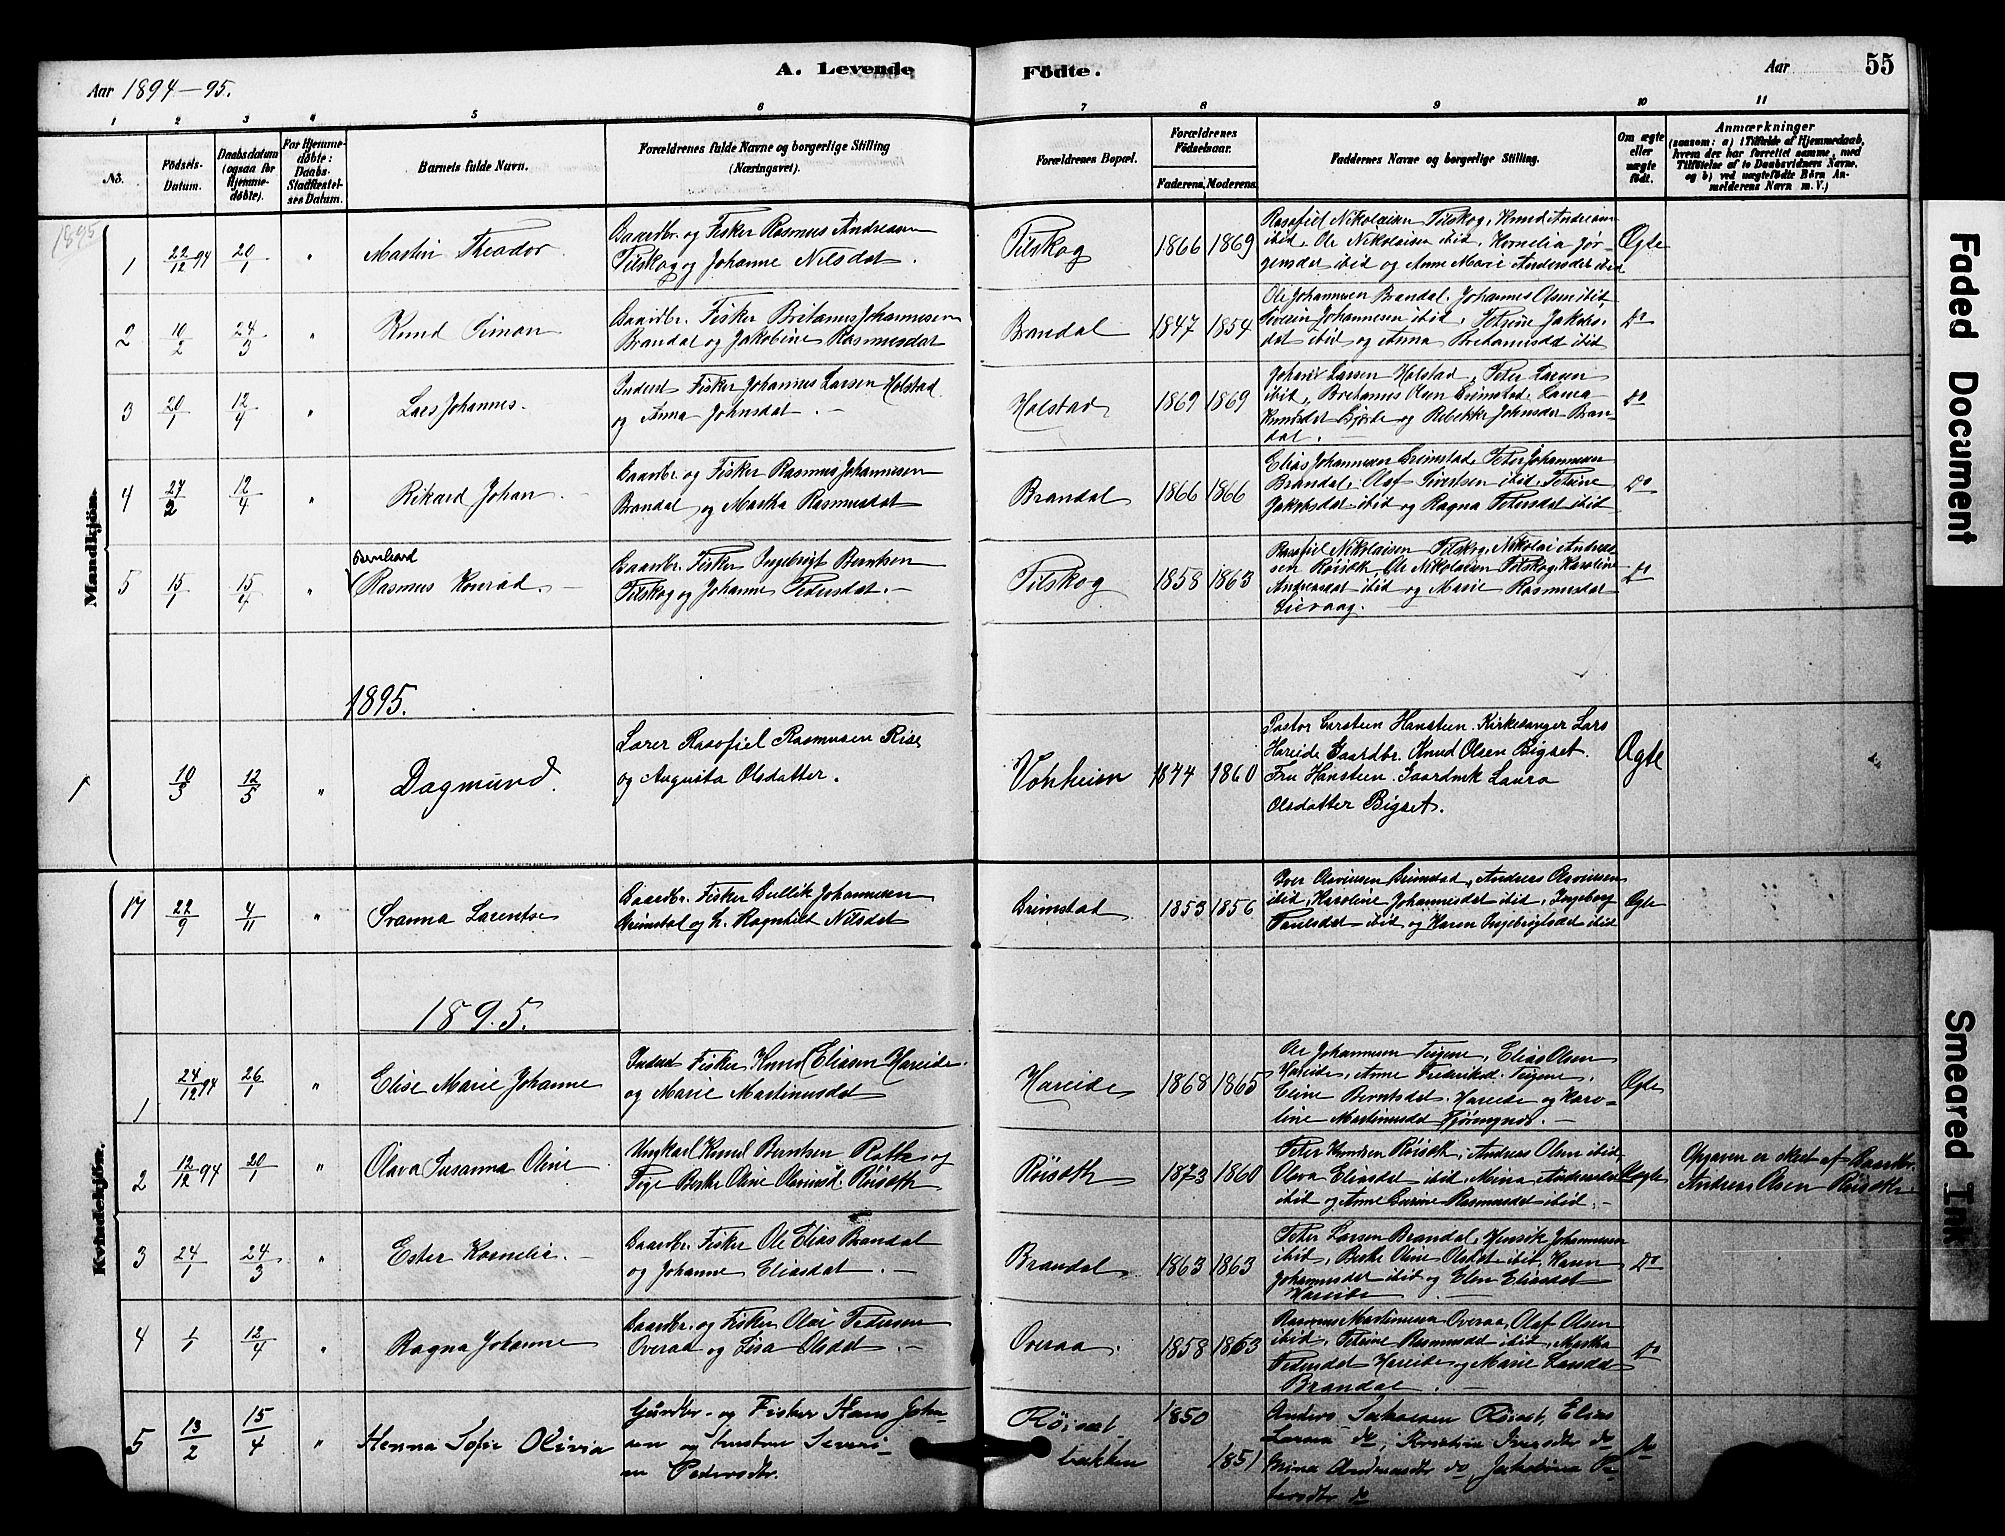 Aar 1894-95.
A. Levende Födte.
Aar
55
1 2 3 4 5 6 7 8 9 10 11
No.
Födsels-Datum.
Daabsdatum (ogsaa for Hjemme-döbte).
For Hjemme-döbte: Daabs-Stadfæstel-ses Datum.
Barnets fulde Navn.
Forældrenes fulde Navne og borgerlige Stilling
(Næringsvei).
Forældrenes Bopæl.
Forældrenes Födselsaar.
Faderens. Moderens.
Faddernes Navne og borgerlige Stilling.
Om ægte eller uægte födt.
Anmærkninger
(saasom: a) i Tilfælde af Hjemmedaab,
hvem der har forrettet samme, med
Tilföielse af to Daabsvidners Navne.
og b) ved uægtefödte Börn An-
melderens Navn m. V.)
Mandkjön.
1895
1 22/12 94 20/1 " Martin Theodor
Gaardbr. og Fisker Rasmus Andreasen
Pilskog og Johanne Nilsdat.
Pilskog 1866 1869
Rasofiel Nikolaisen Pilskog, Knud Andreasen
ibid, Ole Nikolaisen ibid, Kornelia Jör-
gensdat ibid og Anne Marie Andersdat ibid
Ægte
2 10/2 24/3 " Knud Simon
Gaardbr. Fisker Britanus Johannesen
Brandal og Jakobine Rasmusdat
Brandal 1847 1854
Ole Johannesen Brandal, Johannes Olsen ibid,
Severin Johannesen ibid, Petrine Jakobs-
dat ibid og Anna Bretanusdat ibid
Do
3 20/1 12/4 " Lars Johannes.
Inderst Fisker Johannes Larsen Holstad
og Anna Johnsdat. -
Holstad 1869 1869
Johan Larsen Holstad, Peter Larsen
ibid, Bretanus Olsen Grimstad, Laura
Knudsdat Gjerde og Rebekka Johnsdat Bran-
dal. -
Do
4 27/2 12/4 " Rikard Johan. -
Gaardbr. og Fisker Rasmus Johannesen
Brandal og Martha Rasmusdat
Brandal 1866 1866
Elias Johannesen Grimstad, Peter Johannesen
Brandal, Olaf Sivertsen ibid, Petrine
Jakobsdat ibid og Ragna Petersdat ibid
Do
5 15/1 15/4 " Bernhard
Rasmus Konrad. -
Gaardbr. Fisker Ingebrigt Berntsen
Pilskog og Johanne Pedersdat. -
Pilskog 1858 1863
Rasofiel Nikolaisen Pilskog, Nikolai Andrea-
sen Röisæth, Ole Nikolaisen Pilskog, Karoline
Andreasdat ibid og Marie Rasmusdat
Liavaag.
Do
1895.
1 10/3 12/5 " Dagmund.
Lærer Rasofiel Rasmusen Rise
og Augusta Olsdatter.
Vonheim 1844 1860
Pastor Carsten Hansteen. Kirkesanger Lars
Hareide Gaardbr. Knud Olsen Bigset.
Fru Hansteen. Gaardmk Laura
Olsdatter Bigset.
Ægte
Kvindekjön.
17 22/9 4/11 " Svanna Larentse
Gaardbr. Fisker Gullik Johannesen
Grimstad og H. Ragnhild Nilsdat
Grimstad 1853 1856
Iver Olavesen Grimstad, Andreas Olavesen
ibid, Karoline Johannesdat ibid, Ingeborg
Paulsdat ibid og Karen Ingebrigtsdat ibid
Ægte
1895.
1 24/12 94 26/1 " Elise Marie Johanne
Inderst Fisker Knud Eliasen Hareide
og Marie Martinusdat
Hareide 1868 1865
Ole Johannesen Teigene, Elias Olsen
Hareide, Anne Fredriksd. Teigene,
Eline Berntsdat. Hareide og Karo-
line Martinusdat -
Ægte
2 12/12 94 20/1 " Olava Susanna Oline
Ungkarl Knud Berntsen Rotte og
Pige Berthe Oline Olavusd. Röisæth
Röisæth 1873 1860
Peter Knudsen Röisæth, Andreas Olsen ibid
Olava Eliasdat ibid, Mina Andreasdat
ibid og Anne Rasmusdat ibid. -
Uægte
Opgaven er skeet af Gaardbr.
Andreas Olsen Röisæth
3 24/1 24/3 " Ester Kornelie. -
Gaardbr. Fisker Ole Elias Brandal
og Johanne Eliasdat. -
Brandal 1863 1863
Peter Larsen Brandal, Henrik Johannesen
ibid, Berthe Oline Olsdat ibid, Karen
Johannesdat ibid og Elen Eliasdat
Hareide -
Do
4 1/1 12/4 " Ragna Johanne
Gaardbr. og Fisker Olai Pedersen
Overaa og Lisa Olsdat. -
Overaa. 1858 1863
Rasmus Martinusen Overaa, Olaf Olsen
ibid, Petrine Rasmusdat ibid, Martha
Pedersdat Hareide og Marie Larsdat
Brandal. -
Do
5 13/2 15/4 " Henna Sofie Olivia
Gårdbr. og Fisker Hans Joha-
sen og hustru Severi-
ne Pedersdtr.
Röisæt-
bakken
1850 1851
Anders Jakobsen Röiset, Elias
Larsen do, Kristine Iversdtr do
Mina Andreasdtr do, Jakobina P-
tersdtr do
Do
Faded Document
Smeared Ink